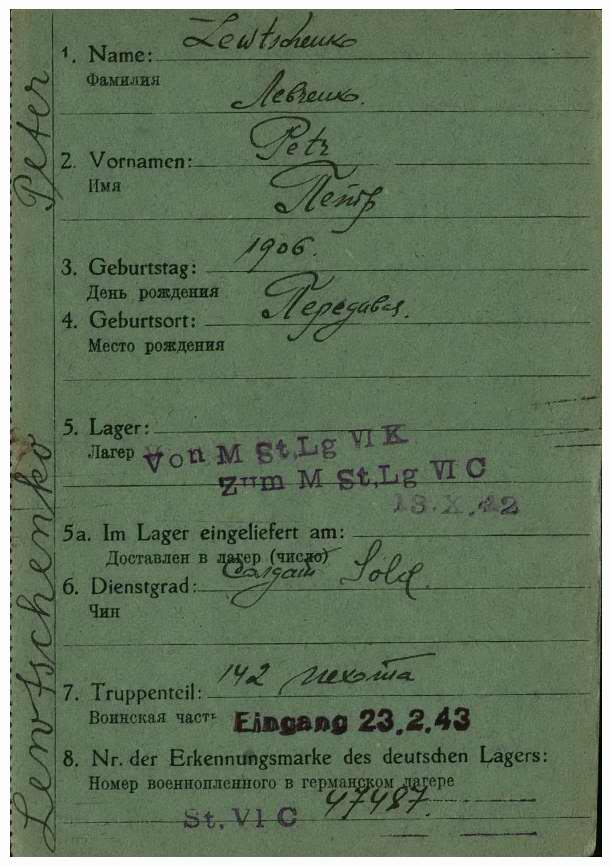 Lewtschenko Peter
1. Name: Lewtschenko
Фамилия
Левченко.
2. Vornamen: Petr
Имя Петр
3. Geburtstag: 1906.
День рождения
4. Geburtsort:
Место рождения
5. Lager:
Лагер Von M St.Lg VI K
Zum M St.Lg VI C
13.X.42
5a. Im Lager eingeliefert am:
Доставлен в лагер (число)
6. Dienstgrad: Солдат Sold.
Чин
7. Truppenteil: 142 пехота
Воинская часть Eingang 23.2.43
8. Nr. der Erkennungsmarke des deutschen Lagers:
Номер военнопленного в германском лагере
St. VI C 47487.